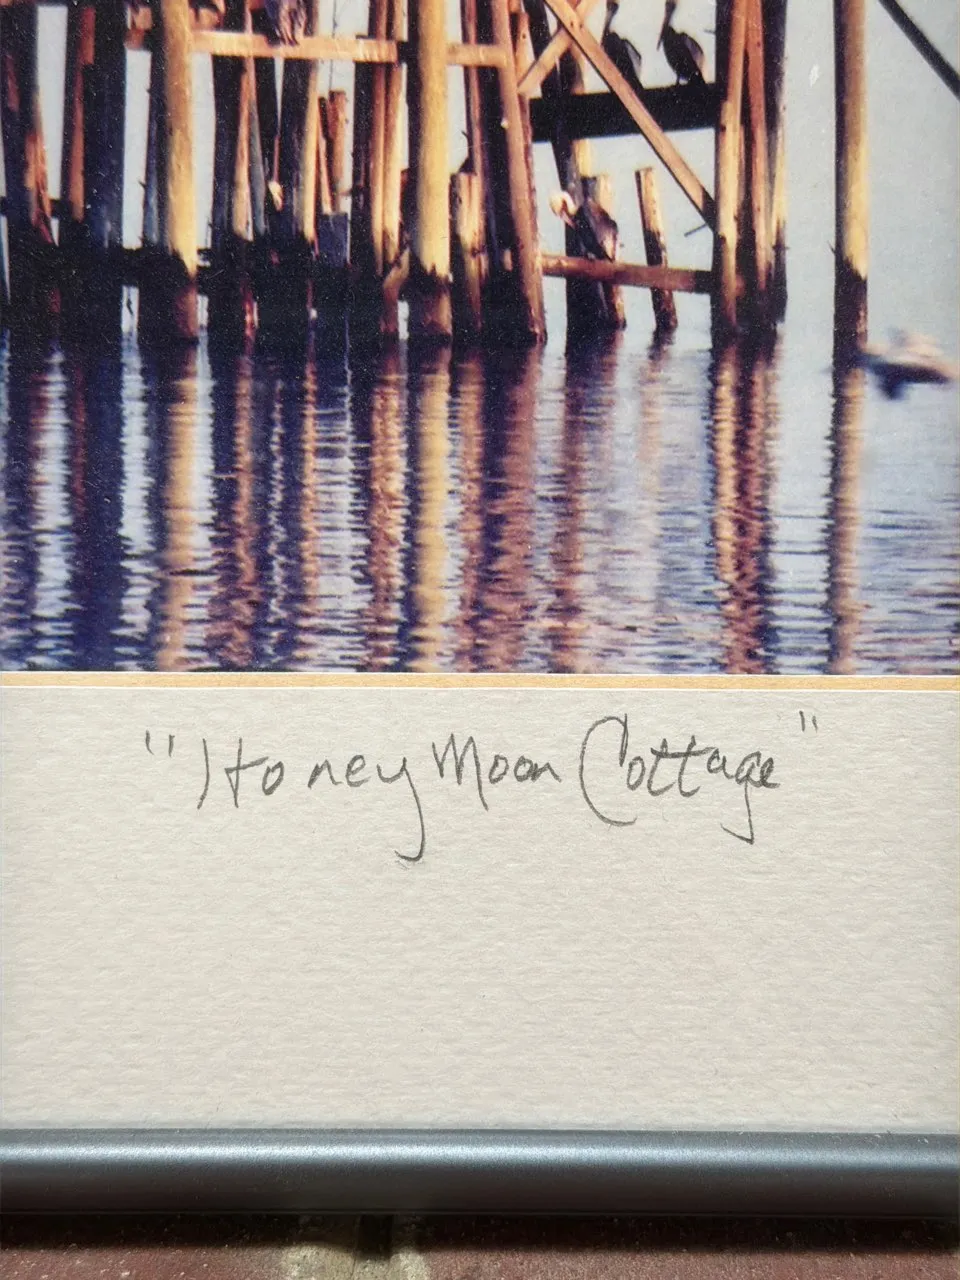 "Honey Moon Cottage"